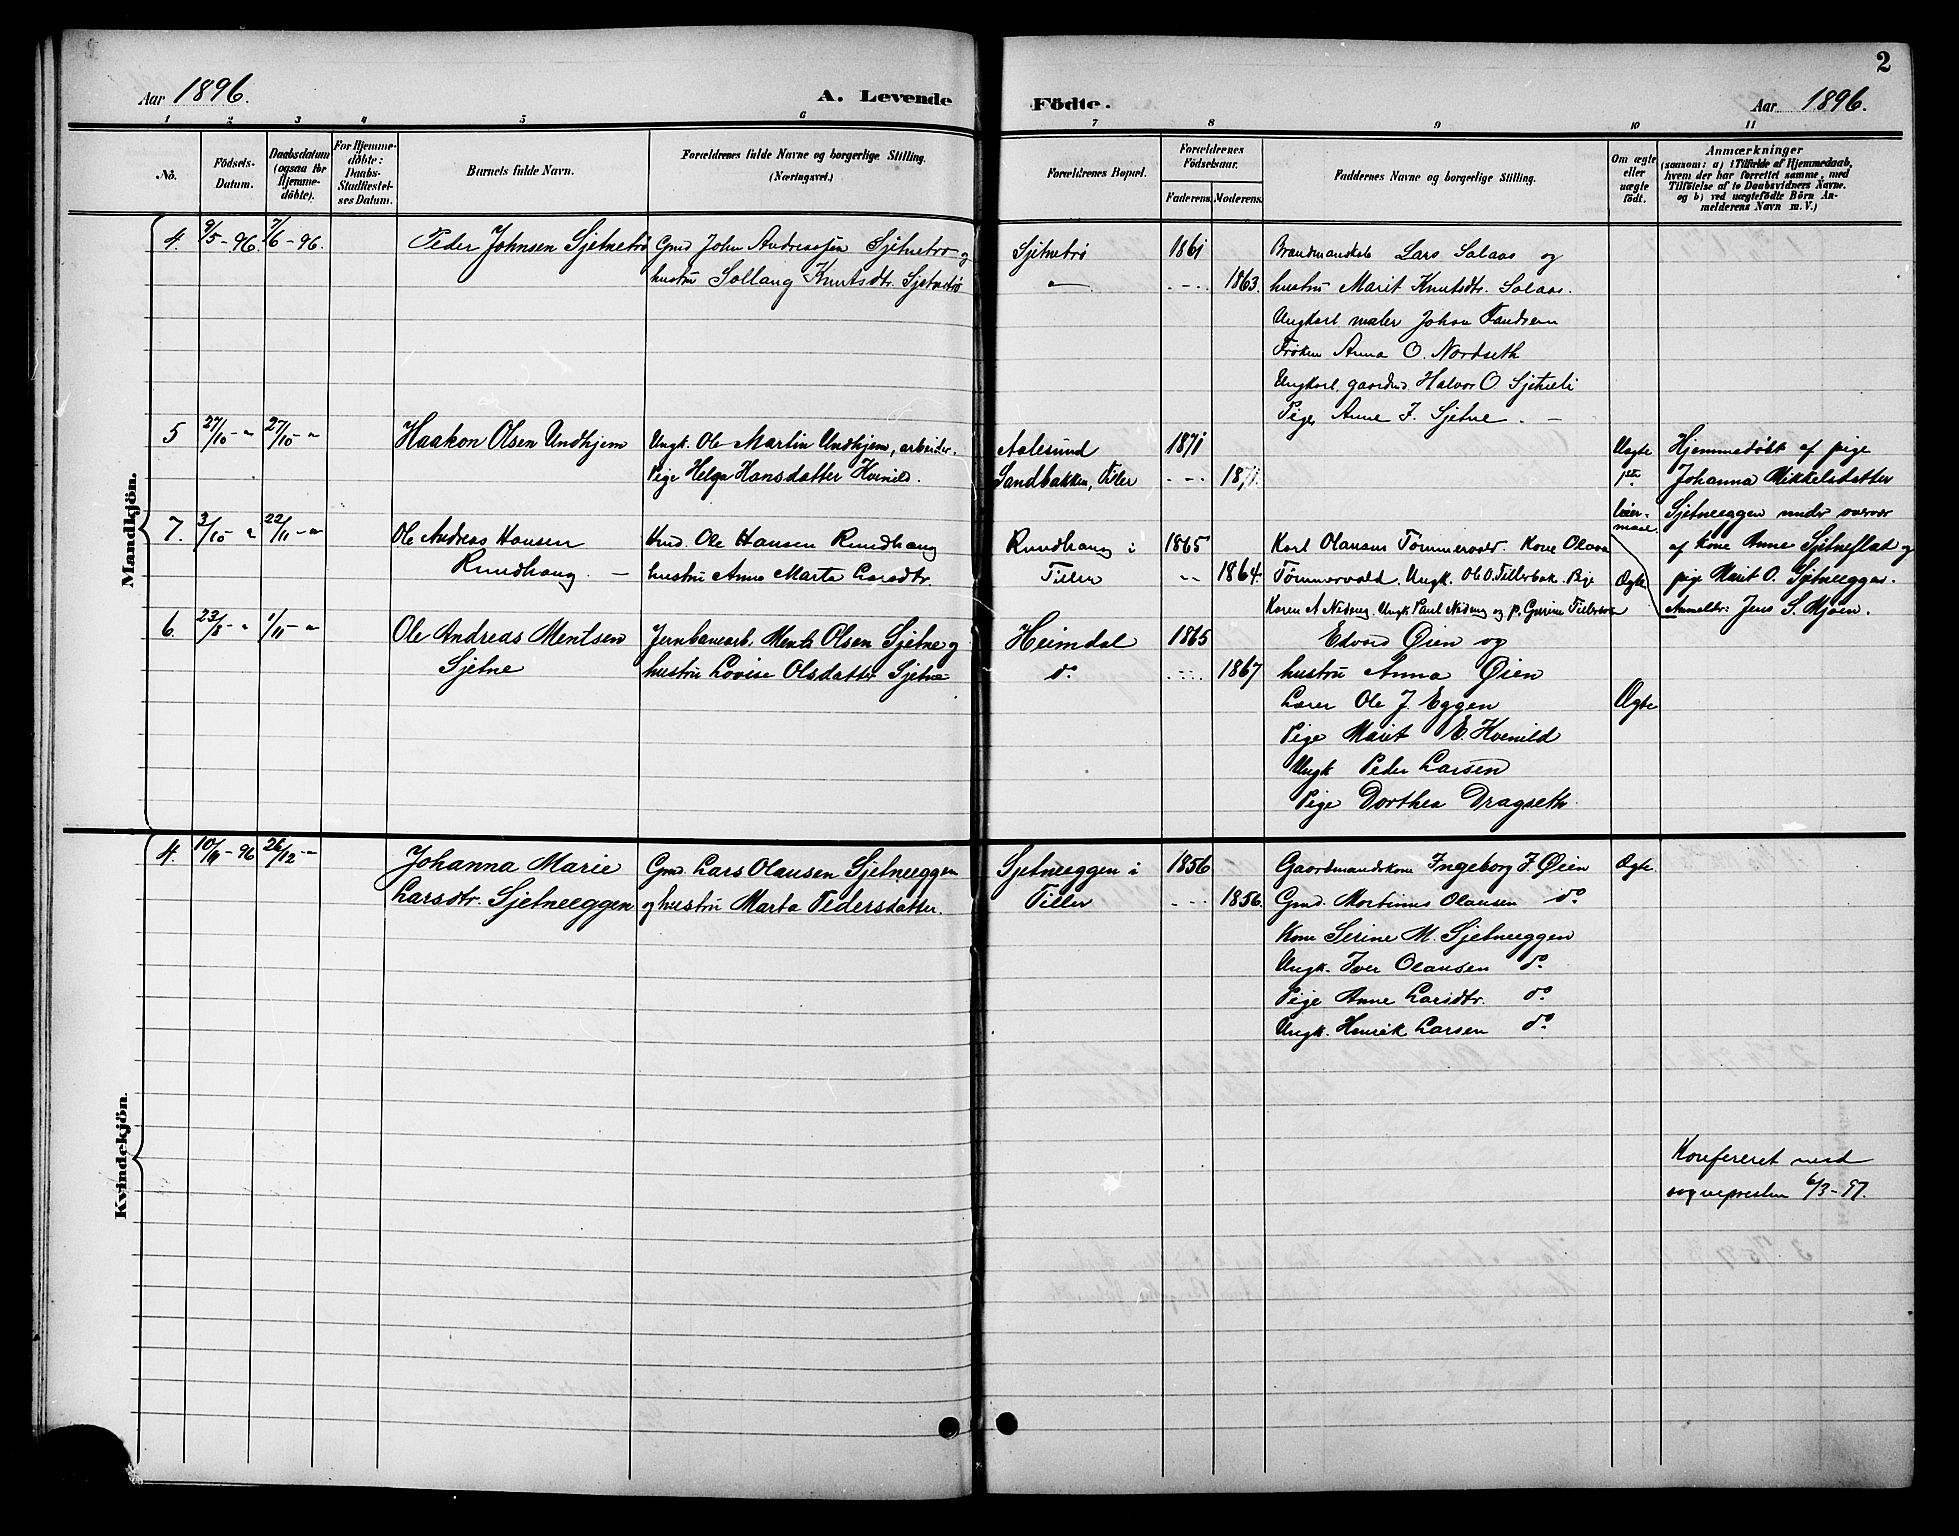 2
Aar 1896.
A. Levende Födte.
Aar 1896.
1 2 3 4 5 6 7 8 9 10 11
Nô.
Födsels-Datum.
Daabsdatum (ogsaa for Hjemme-döbte).
For Hjemme-döbte: Daabs-Stadfæstel-ses Datum.
Barnets fulde Navn.
Forældrenes fulde Navne og borgerlige Stilling. (Næringsvei.)
Forældrenes Bopæl.
Forældrenes Födselsaar.
Faderens. Moderens.
Faddernes Navne og borgerlige Stilling.
Om ægte eller uægte födt.
Anmærkninger
(saasom: a) i Tilfælde af Hjemmedaab,
hvem der har forrettet samme, med
Tilföielse af to Daabsvidners Navne.
og b) ved uægtefödte Börn An-
melderens Navn m. V.)
Mandkjön.
4. 9/5-96. 7/6-96. Peder Johnsen Sjetnetrö Gmd John Andreassen Sjetnetrö og Sjetnetrö 1861 Brandmandskab Lars Solaas og
hustru Sollaug Knutsdtr. Sjetnetrö " 1863. hustru Marit Knutsdtr. Solaas.
Ungkarl maler Johan
Frøken Anna O. Nordseth
Ungkarl, gaardm. Halvor O. Sjetneli
Pige Anne J. Sjetne.
5 27/10 - " 27/10 - " Haakon Olsen Undhjem Ungk. Ole Martin Undhjem, arbeider. Aalesund 1871 Uægte Hjemmedöbt af pige
Pige Helga Hansdatter Kvenild. Sandbakken, Tiller - - - 1871. 1ste Johanna Mikkelsdatter
leier- Sjetneeggen under overvær
7. 3/10 " 22/11 - " Ole Andreas Hansen Gmd. Ole Hansen Rundhaug Rundhaug i 1865 Karl Olausen Tömmervold. Kone Olava maal af kone Anne Sjetneflad og
Rundhaug. - hustru Anne Marta Larsdtr. Tiller - - 1864. Tömmervold, Ungk. Ole O. Tillerbak. Pige Ægte pige Marit O. Sjetneeggen.
Karen A Nideng. Ungk Paul Nideng og p. Gurine Anmelder: Jens S. Mjøen.
6. 23/8 - " 1/11 - " Ole Andreas Mentsen Jernbanearb. Ments Olsen Sjetne og Heimdal 1865 Edvard Øien og
Sjetne hustru Lovise Olsdatter Sjetne do 1867 hustru Anna Øien
Lærer Ole J. Eggen Ægte
Pige Marit E. Kvenild
Ungk Peder Larsen
Pige Dorthea Dragseth.
Kvindekjön.
4. 10/11-96 26/12 - " Johanna Marie Gmd. Lars Olausen Sjetneeggen Sjetneeggen i 1856 Gaardmandskone Ingeborg J. Øien Ægte
Larsdtr. Sjetneeggen og hustru Marta Pedersdatter. Tiller - - - 1856. Gmd. Martinus Olausen do
Kone Serine M. Sjetneeggen
Ungk. Iver Olausen do
Pige Anne Larsdtr. do
Ungk. Henrik Larsen do
Konfereret med
sognepresten 6/3-97.